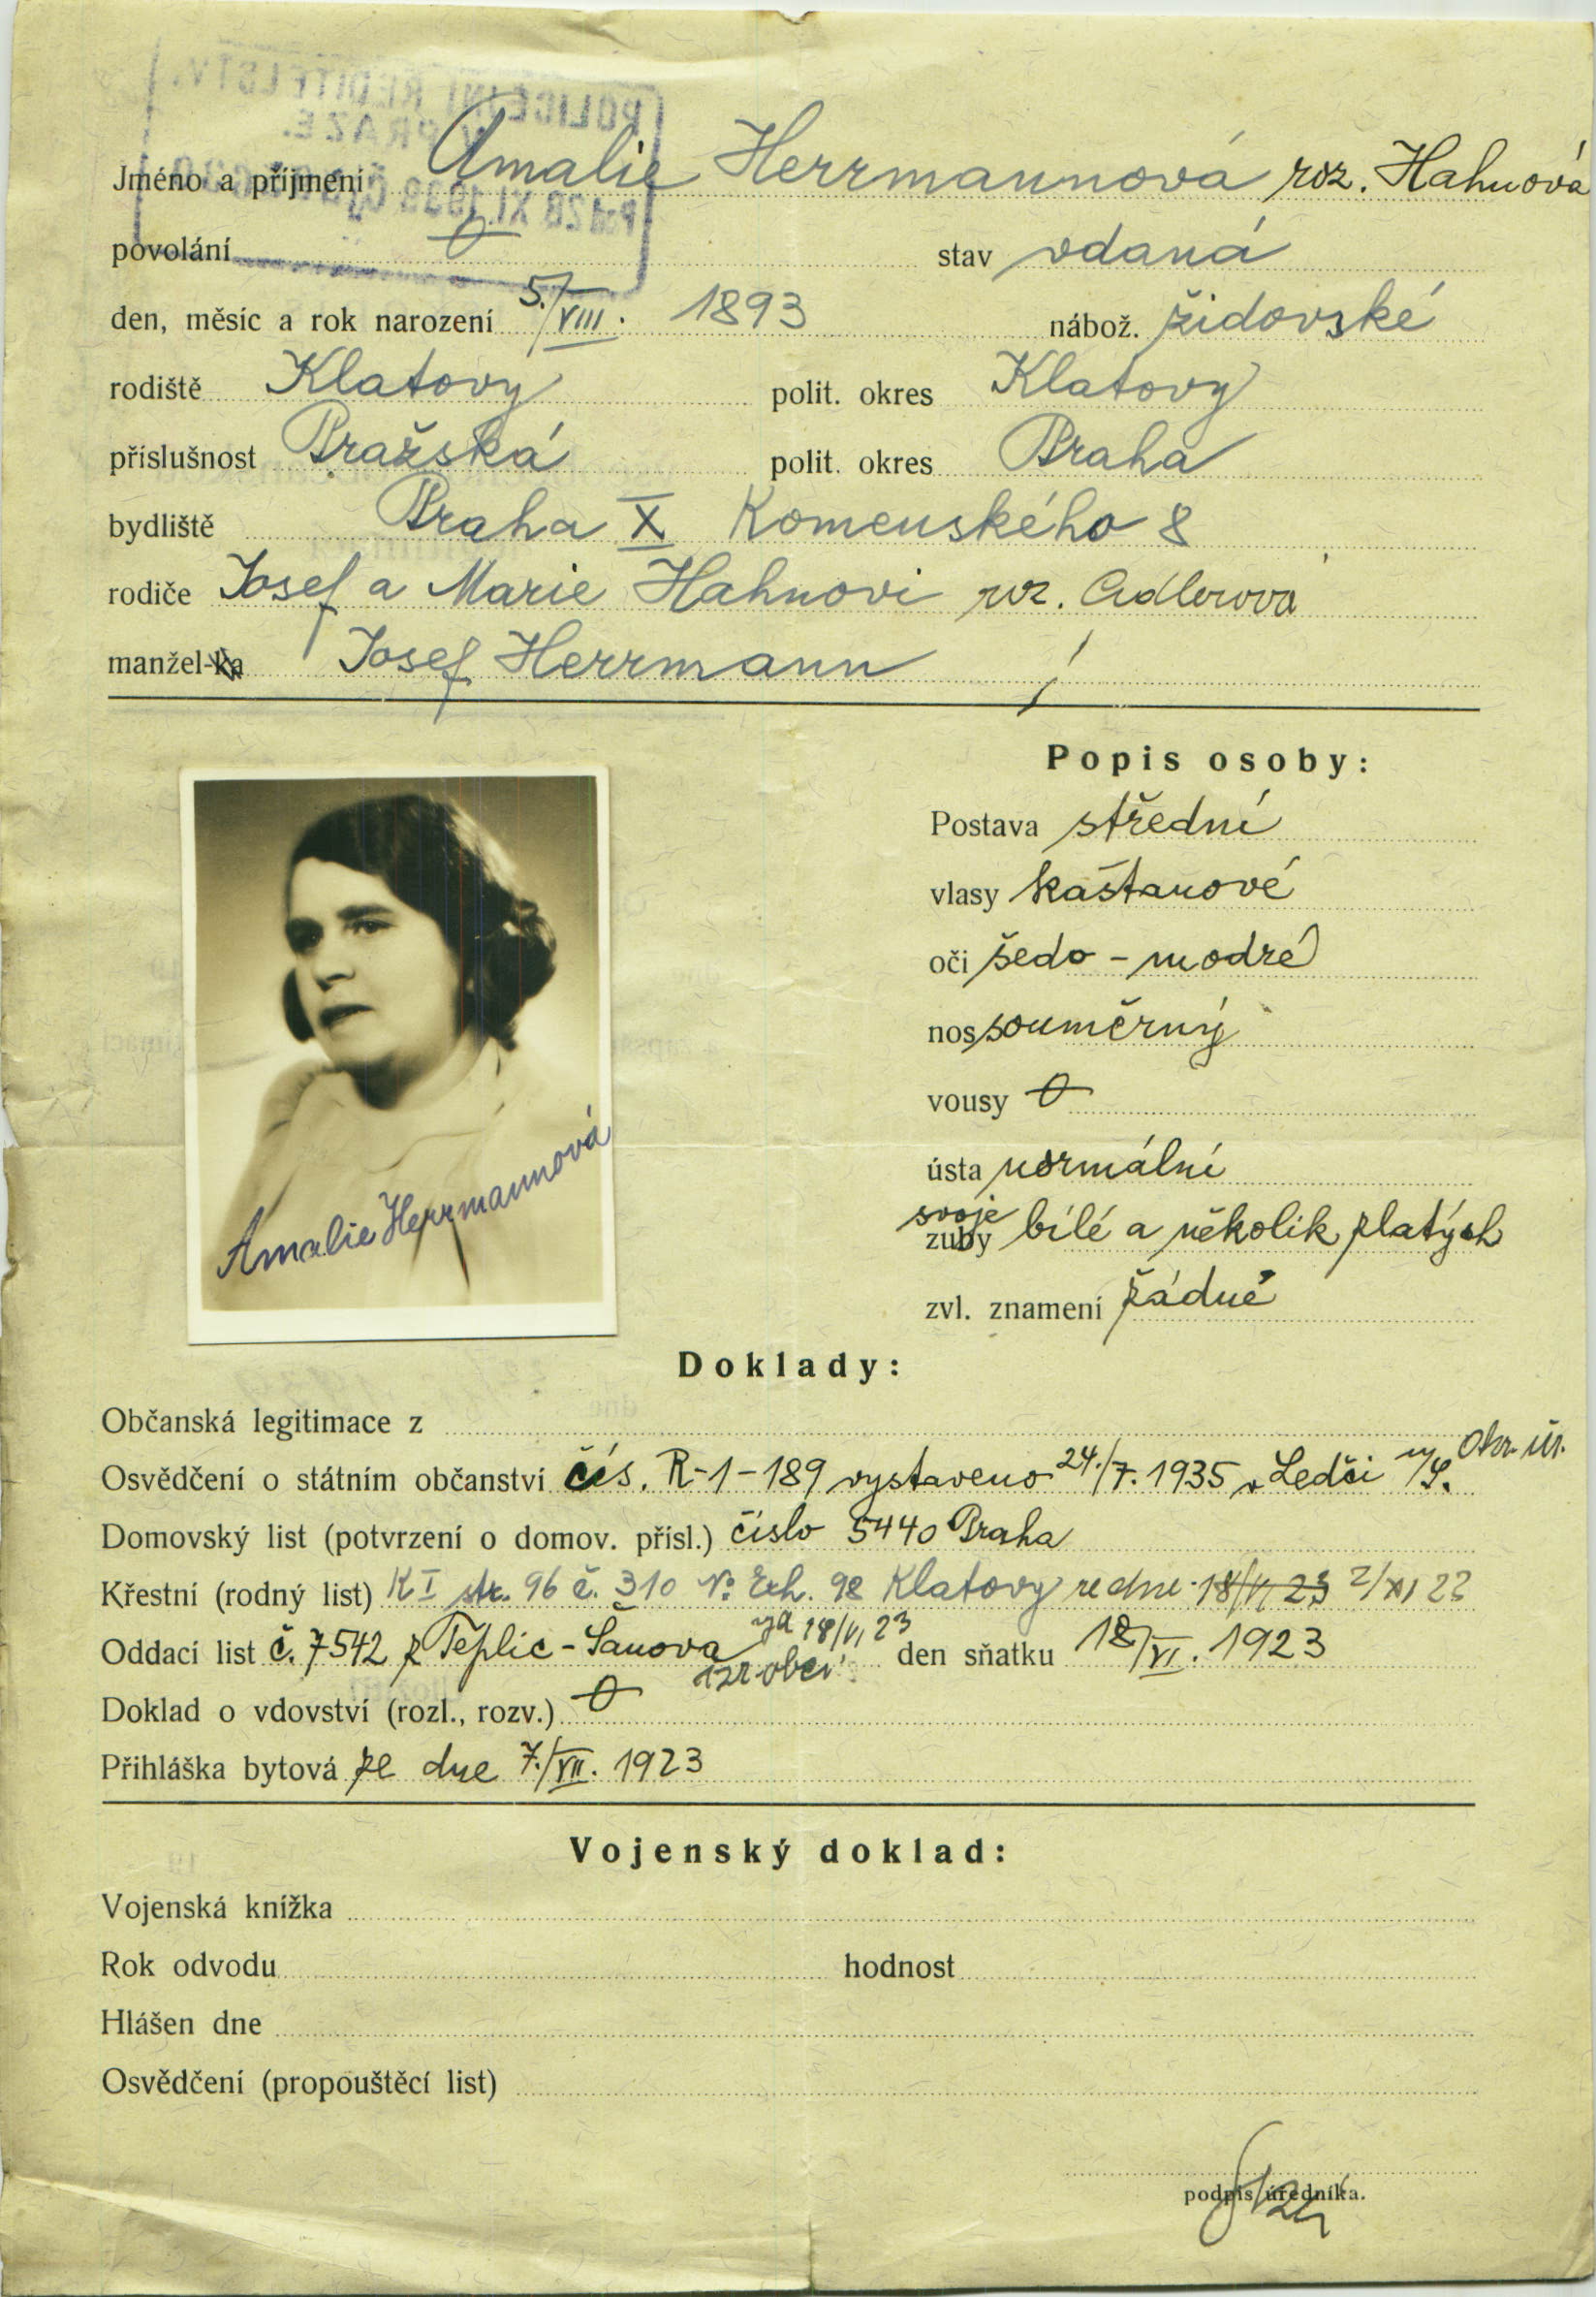 Jméno a příjmení Amalie Herrmannová roz. Hahnová
povolání 0 stav vdaná
den, měsíc a rok narození 5./VIII. 1893 nábož. židovské
rodiště Klatovy polit. okres Klatovy
příslušnost Pražská polit. okres Praha
bydliště Praha X Komenského 8
rodiče Josef a Marie Hahnovi roz. Adlerová
manžel-ka Josef Herrmann
Popis osoby:
Postava střední
vlasy kaštanové
oči šedo-modré
nos souměrný
vousy 0
ústa normální
svoje
zuby bílé a několik zlatých
zvl. znamení žádné
Amalie Herrmannová
Doklady:
Občanská legitimace z
Osvědčení o státním občanství čís. R-1-189 vystaveno 24./7. 1935 v Ledči n/S. Okr. úř.
Domovský list (potvrzení o domov. přísl.) číslo 5440 Praha
Křestní (rodný list) K I str. 96 č. 310 98 Klatovy ze dne 18/VI 23 2/XI 22
Oddací list č. 7542 z Teplic-Šanova 18/VI 23 den sňatku 18./VI. 1923
izr obci
Doklad o vdovství (rozl., rozv.) 0
Přihláška bytová ze dne 7./VII. 1923
Vojenský doklad:
Vojenská knížka
Rok odvodu hodnost
Hlášen dne
Osvědčení (propouštěcí list)
podpis úředníka.